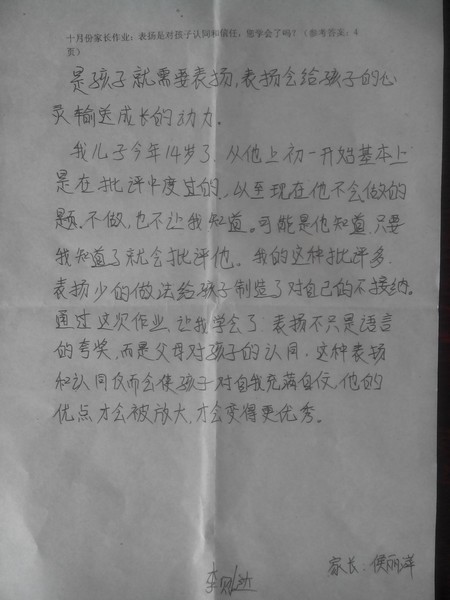 十月份家长作业：表扬是对孩子认同和信任，您学会了吗？（参考答案：4
页）
是孩子就需要表扬，表扬会给孩子的心
灵输送成长的动力。
我儿子今年14岁了，从他上初一开始基本上
是在批评中度过的，以至现在他不会做的
题，不做，也不让我知道。可能是他知道，只要
我知道了就会批评他。我的这种批评多，
表扬少的做法给孩子制造了对自己的不接纳。
通过这次作业，让我学会了表扬不只是语言
的夸奖，而是父母对孩子的认同，这种表扬
和认同反而会使孩子对自我充满自信，他的
优点才会被放大，才会变得更优秀。
家长：侯丽萍
李